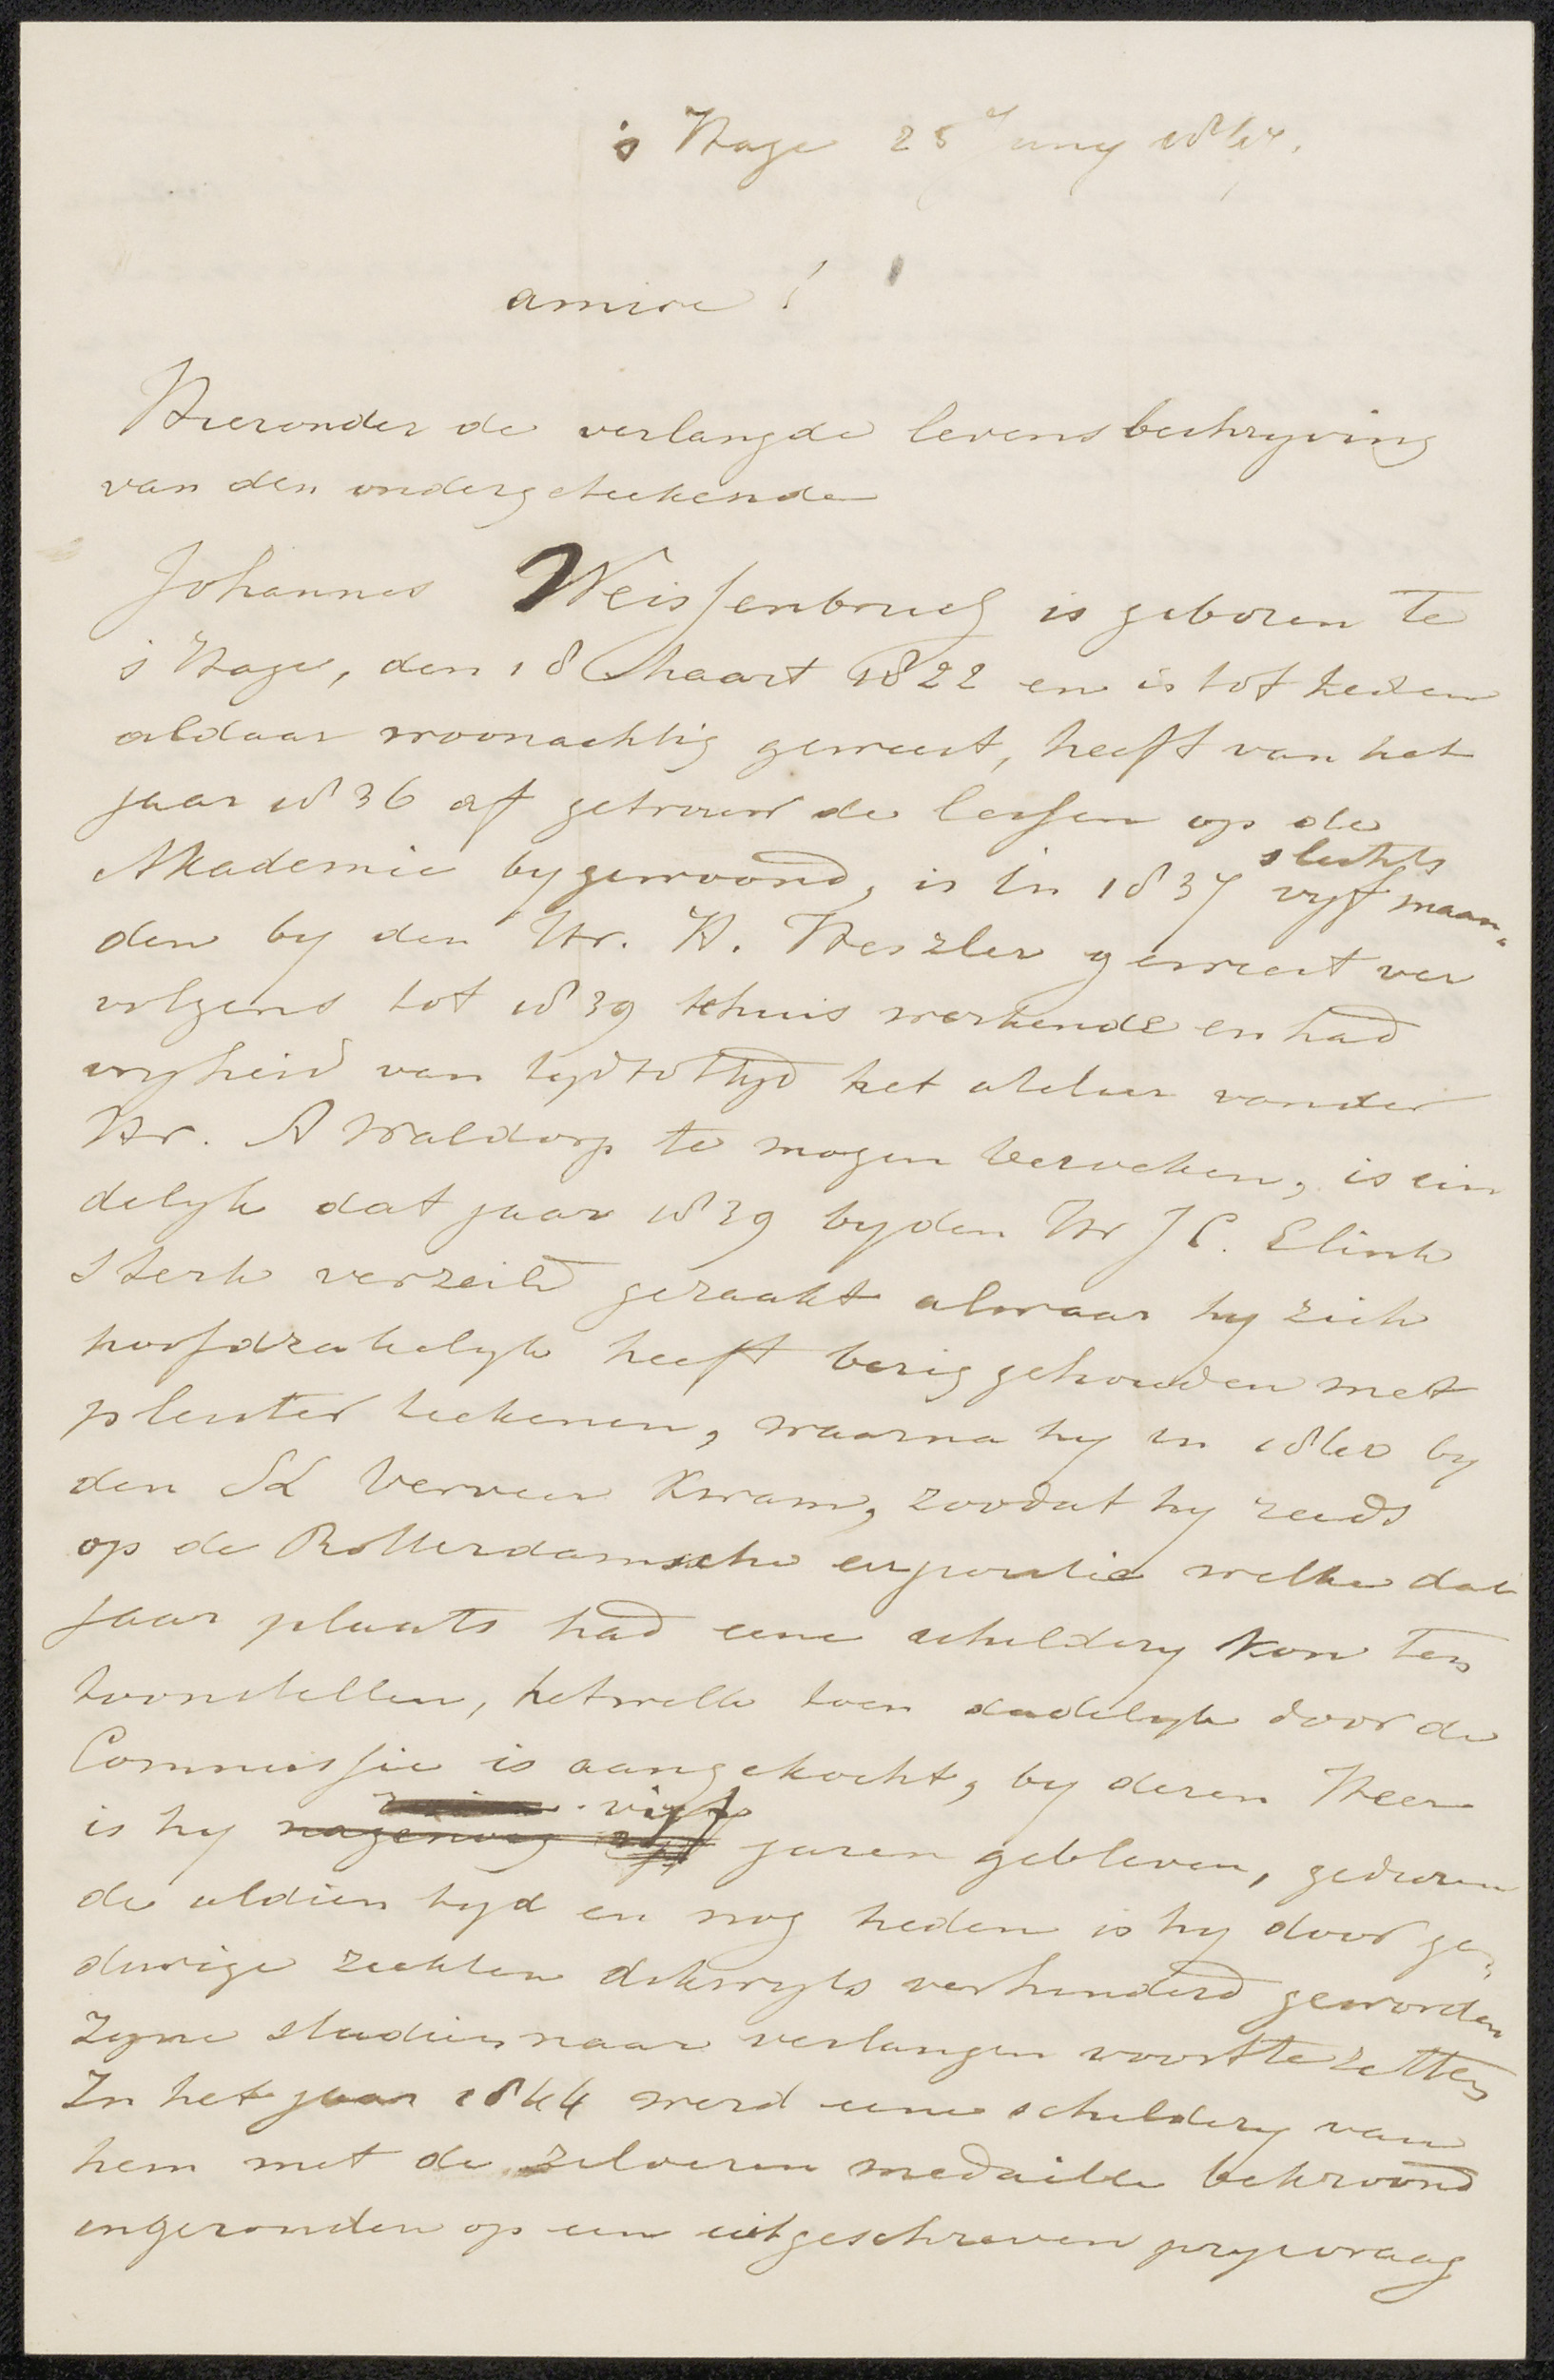 's Hage 25 Juny
amice!
Hieronder de verlangde levensbeschryving
van den ondergeteekende
Johannes Weissenbruch is geboren te
's Hage, den 18 Maart 1822 en is tot heden
aldaar woonachtig geweest, heeft van het
jaar 1836 af getrouw de lessen op de
Akademie bygewoond, is in 1837 slechts vyf maan-
den by den Hr. H. Heszler geweest ver
volgens tot 1839 tehuis werkende en had
vryheid van tyd tot tyd het atelier van den
Hr. A Waldorp te mogen bezoeken, is ein
delyk dat jaar 1839 by den Hr J C. Elink
Sterk verzeild geraakt alwaar hy zich
hoofdzakelyk heeft bezig gehouden met
pleister teekenen, waarna hy in 1840 by
den SL Verveer kwam, zoodat hy reeds
op de Rotterdamsche expositie welke dat
jaar plaats had eene schildery kon ten
toonstellen, hetwelk toen dadelyk door de
Commissie is aangekocht, by dezen Heer
is hy nagenoeg vyf jaren gebleven, geduren
de aldien tyd en nog heden is hy door ge-
durige ziekten dikwyls verhinderd geworden
zyne studien naar verlangen voort te zetten
In het jaar 1844 werd eene schildery van
hem met de zilveren medaille bekroond
ingezonden op een uitgeschreven prysvraag